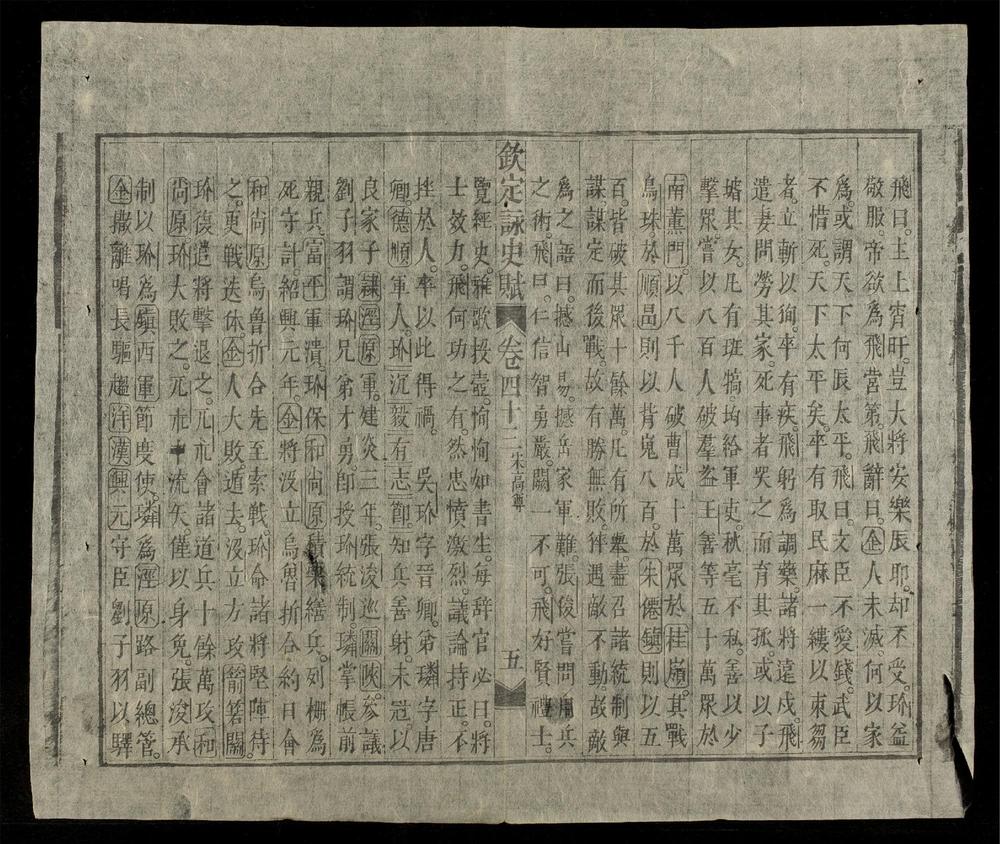 飛曰。主上宵旰。豈大將安樂辰耶。却不受。玠益
敬服。帝欲爲飛營第。飛辭曰。金人未滅。何以家
爲。或謂天下何辰太平。飛曰。文臣不愛錢。武臣
不惜死。天下太平矣。卒有取民麻一縷以束芻
者。立斬以徇。卒有疾。飛躬爲調藥。諸將遠戍。飛
遣妻問勞其家。死事者哭之而育其孤。或以子
婚其女。凡有班犒。均給軍吏。秋毫不私。善以少
擊眾。嘗以八百人破羣盜王善等五十萬眾於
南薰門。以八千人破曹成十萬眾於桂嶺。其戰
烏珠於順昌則以背嵬八百。於朱僊鎮則以五
百。皆破其眾十餘萬。凡有所舉。盡召諸統制與
謀。謀定而後戰。故有勝無敗。猝遇敵不動。故敵
爲之語曰。撼山易。撼岳家軍難。張俊嘗問用兵
之術。飛曰。仁信智勇嚴。闕一不可。飛好賢禮士。
欽定詠史賦 卷四十二 宋高尊 五
覽經史。雅歌投壺。恂恂如書生。每辞官必曰。將
士效力。飛何功之有。然忠憤激烈。議論持正。不
挫於人。卒以此得禍。 吳玠字晉卿。弟璘字唐
卿。德順軍人。玠沉毅有志節。知兵善射。未冠以
良家子隸涇原軍。建炎三年。張浚巡關陝。參議
劉子羽謂玠兄弟才勇。卽授玠統制。璘掌帳前
親兵。富平軍潰。玠保和尚原積粟繕兵。列柵爲
死守計。紹興元年。金將沒立烏魯折合約日會
和尚原。烏魯折合先至索戰。玠命諸將堅陣待
之。更戰迭休。金人大敗。遁去。沒立方攻箭筈關。
玠復遣將擊退之。兀朮會諸道兵十餘萬攻和
尚原。玠大敗之。兀朮中流矢僅以身免。張浚承
制以玠爲鎮西軍節度使。璘爲涇原路副總管。
金撒離喝長驅趨洋漢興元守臣劉子羽以驛